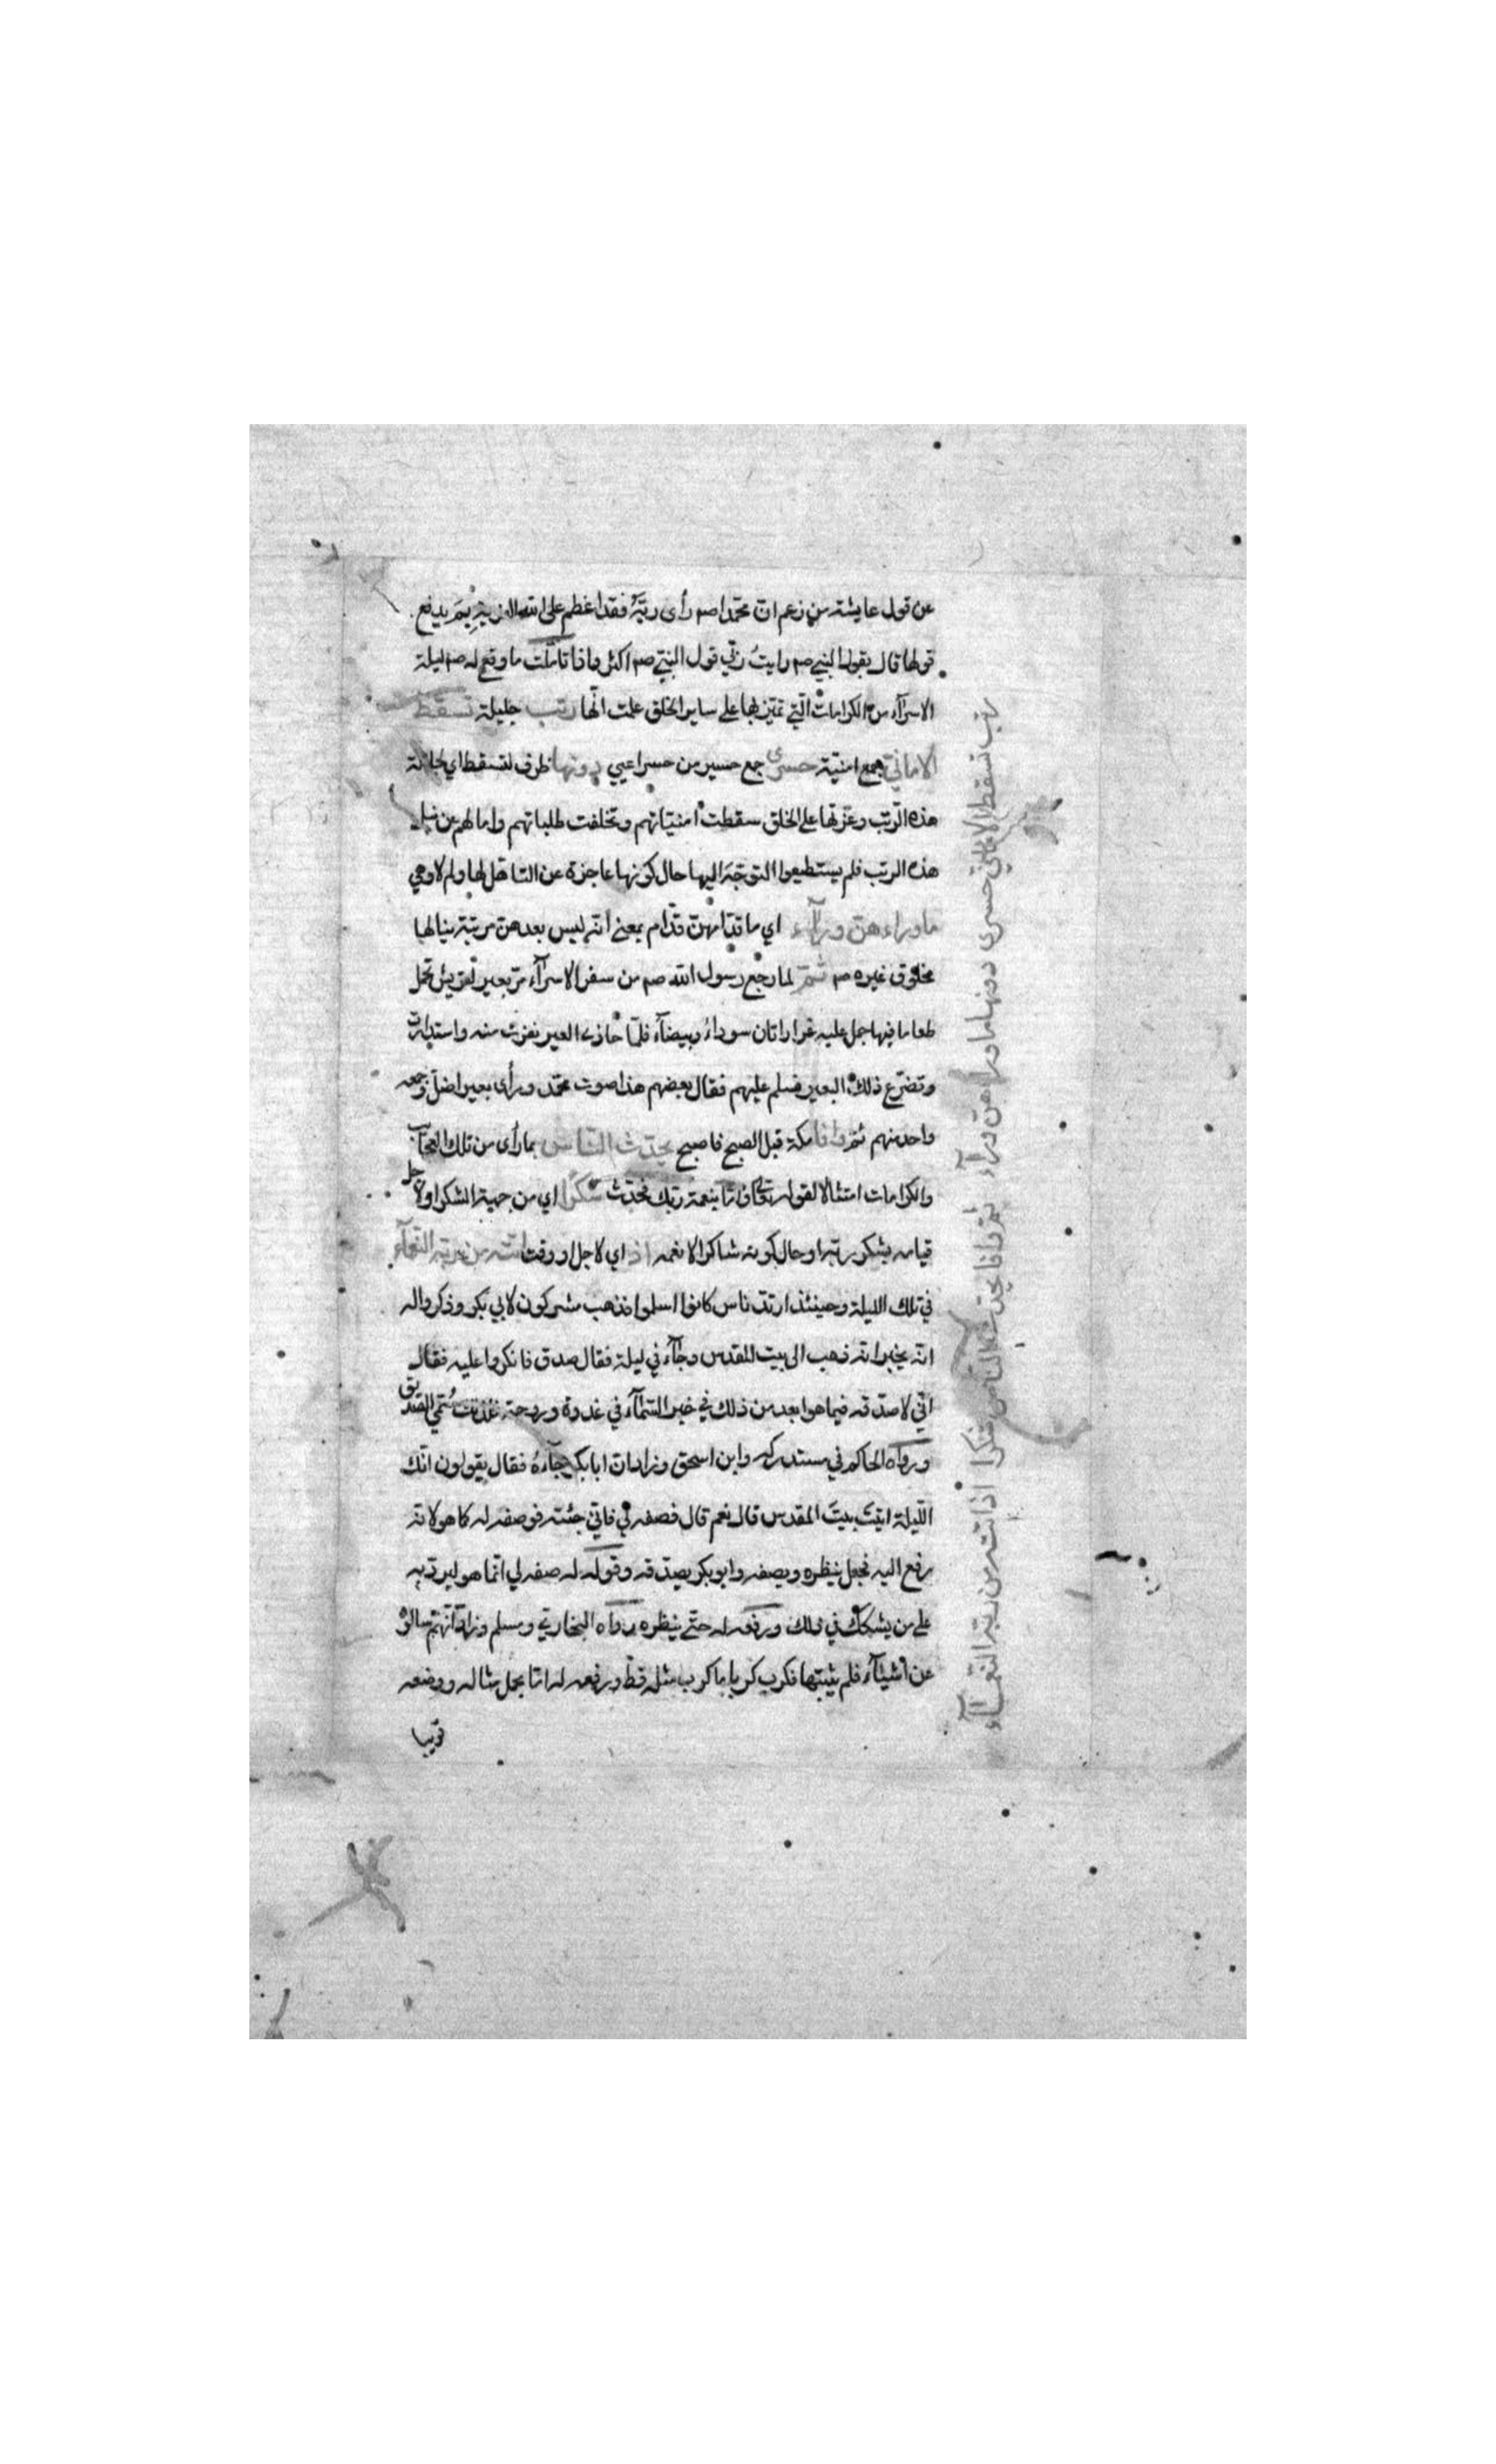 عن قول عايشة من زعم ان محمدا صم رأى ربّه فقد اعظم على الله الفرية بم يدفع
قولها قال بقول النبي صم رايتُ ربّي قول النبي صم اكثر واذا تاملت ما وقع له صم ليلة
الاسرآء من الكرامات التي تميّز بها على ساير الخلق علمت انّها رتب جليلة تسقط
الاماني جمع امنيّة حسرى جمع حسير من حسر اعيي دونها ظرف لتسقط اي لجلالة
هذه الرتب وعزتها على الخلق سقطت امنيّاتهم وتخلفت طلباتهم وامالهم عن نيل
هذه الرتب فلم يستطيعوا التوجّه اليها حال كونها عاجزة عن التاهّل لها ولم لا وهي
ما وراءهن ورآء اي ما قدّامهن قدّام بمعنى انّه ليس بعدهن مرتبة ينالها
مخلوق غيره صم ثمّ لما رجع رسول الله صم من سفر الاسرآء مرّ بعير لقريش تحمل
طعاما فيها جمل عليه غرارتان سودآء وبيضآء فلمّا حاذى العير نفرت منه واستدارت
وتضرّع ذلك البعير فسلم عليهم فقال بعضهم هذا صوت محمّد ورأى بعيرا ضلّ وجمعه
واحد منهم ثمّ وافا مكة قبل الصبح فاصبح يحدّث النّاس بما رأى من تلك العجآيب
والكرامات امتثالا لقوله تعالى وامّا بنعمة ربك فحدّث شكرًا اي من جهة الشكر او لاجل
قيامه بشكر ربّه او حال كونه شاكرا لانعمه اذ اي لاجل او وقت اتته من ربّه النّعمآء
في تلك الليلة وحينئذ ارتدّ ناس كانوا اسلموا فذهب مشركون لابي بكر وذكروا له
انّه يخبر انه ذهب الى بيت المقدس وجآء في ليلة فقال صدق فانكروا عليه فقال
انّي لاصدّقه فيما هو ابعد من ذلك في خبر السّمآء في غدوة وروحة فلذلك سُمّي الصديق
ورواه الحاكم في مستدركه وابن اسحق وزاد ان ابا بكر جآءهُ فقال يقولون انّك
اللّيلة اتيتَ بيتَ المقدس قال نعم قال فصفه لي فاني جئته فوصفه له كما هو لانه
رفع اليه فجعل ينظره ويصفه وابو بكر يصدّقه وقوله له صفه لي انّما هو ليردّ به
على من يشكّك في ذلك ورفعه له حتّى ينظره رواه البخاري ومسلم وزاد انّهم سالوه
عن اشيآء فلم يثبتها فكرب كربا ما كرب مثله قطّ ورفعه له امّا بحمل مثاله ووضعه
قريبا
رتب تسقط الاماني حسرى دونها ما وراءهن ورآء ثمّ وافا يحدّث النّاس شكرا اذ اتته من ربّه النّعمآء